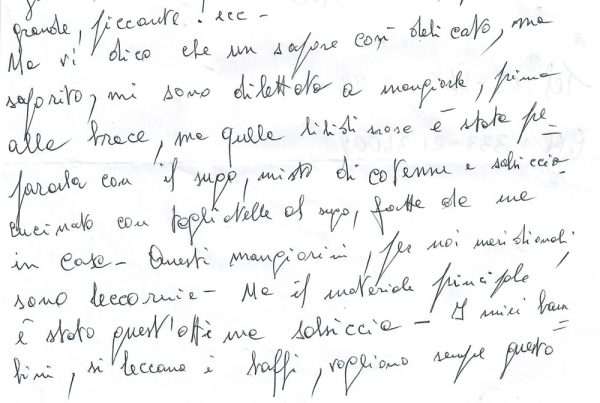 grande, piccante! ecc -
Ma vi dico che un sapore così delicato, ma
saporito, mi sono dilettata a mangiarla, prima
alla brace, ma quella è stata pre=
parata con il sugo, misto di cotenne e salsiccia
cucinato con tagliatelle al sugo, fatte da me
in casa - Questi mangiarini, per noi meridionali,
sono leccornie - Ma il materiale principale,
è stato quest'ottima salsiccia - I miei bam=
bini, si leccano i baffi, vogliono sempre questo